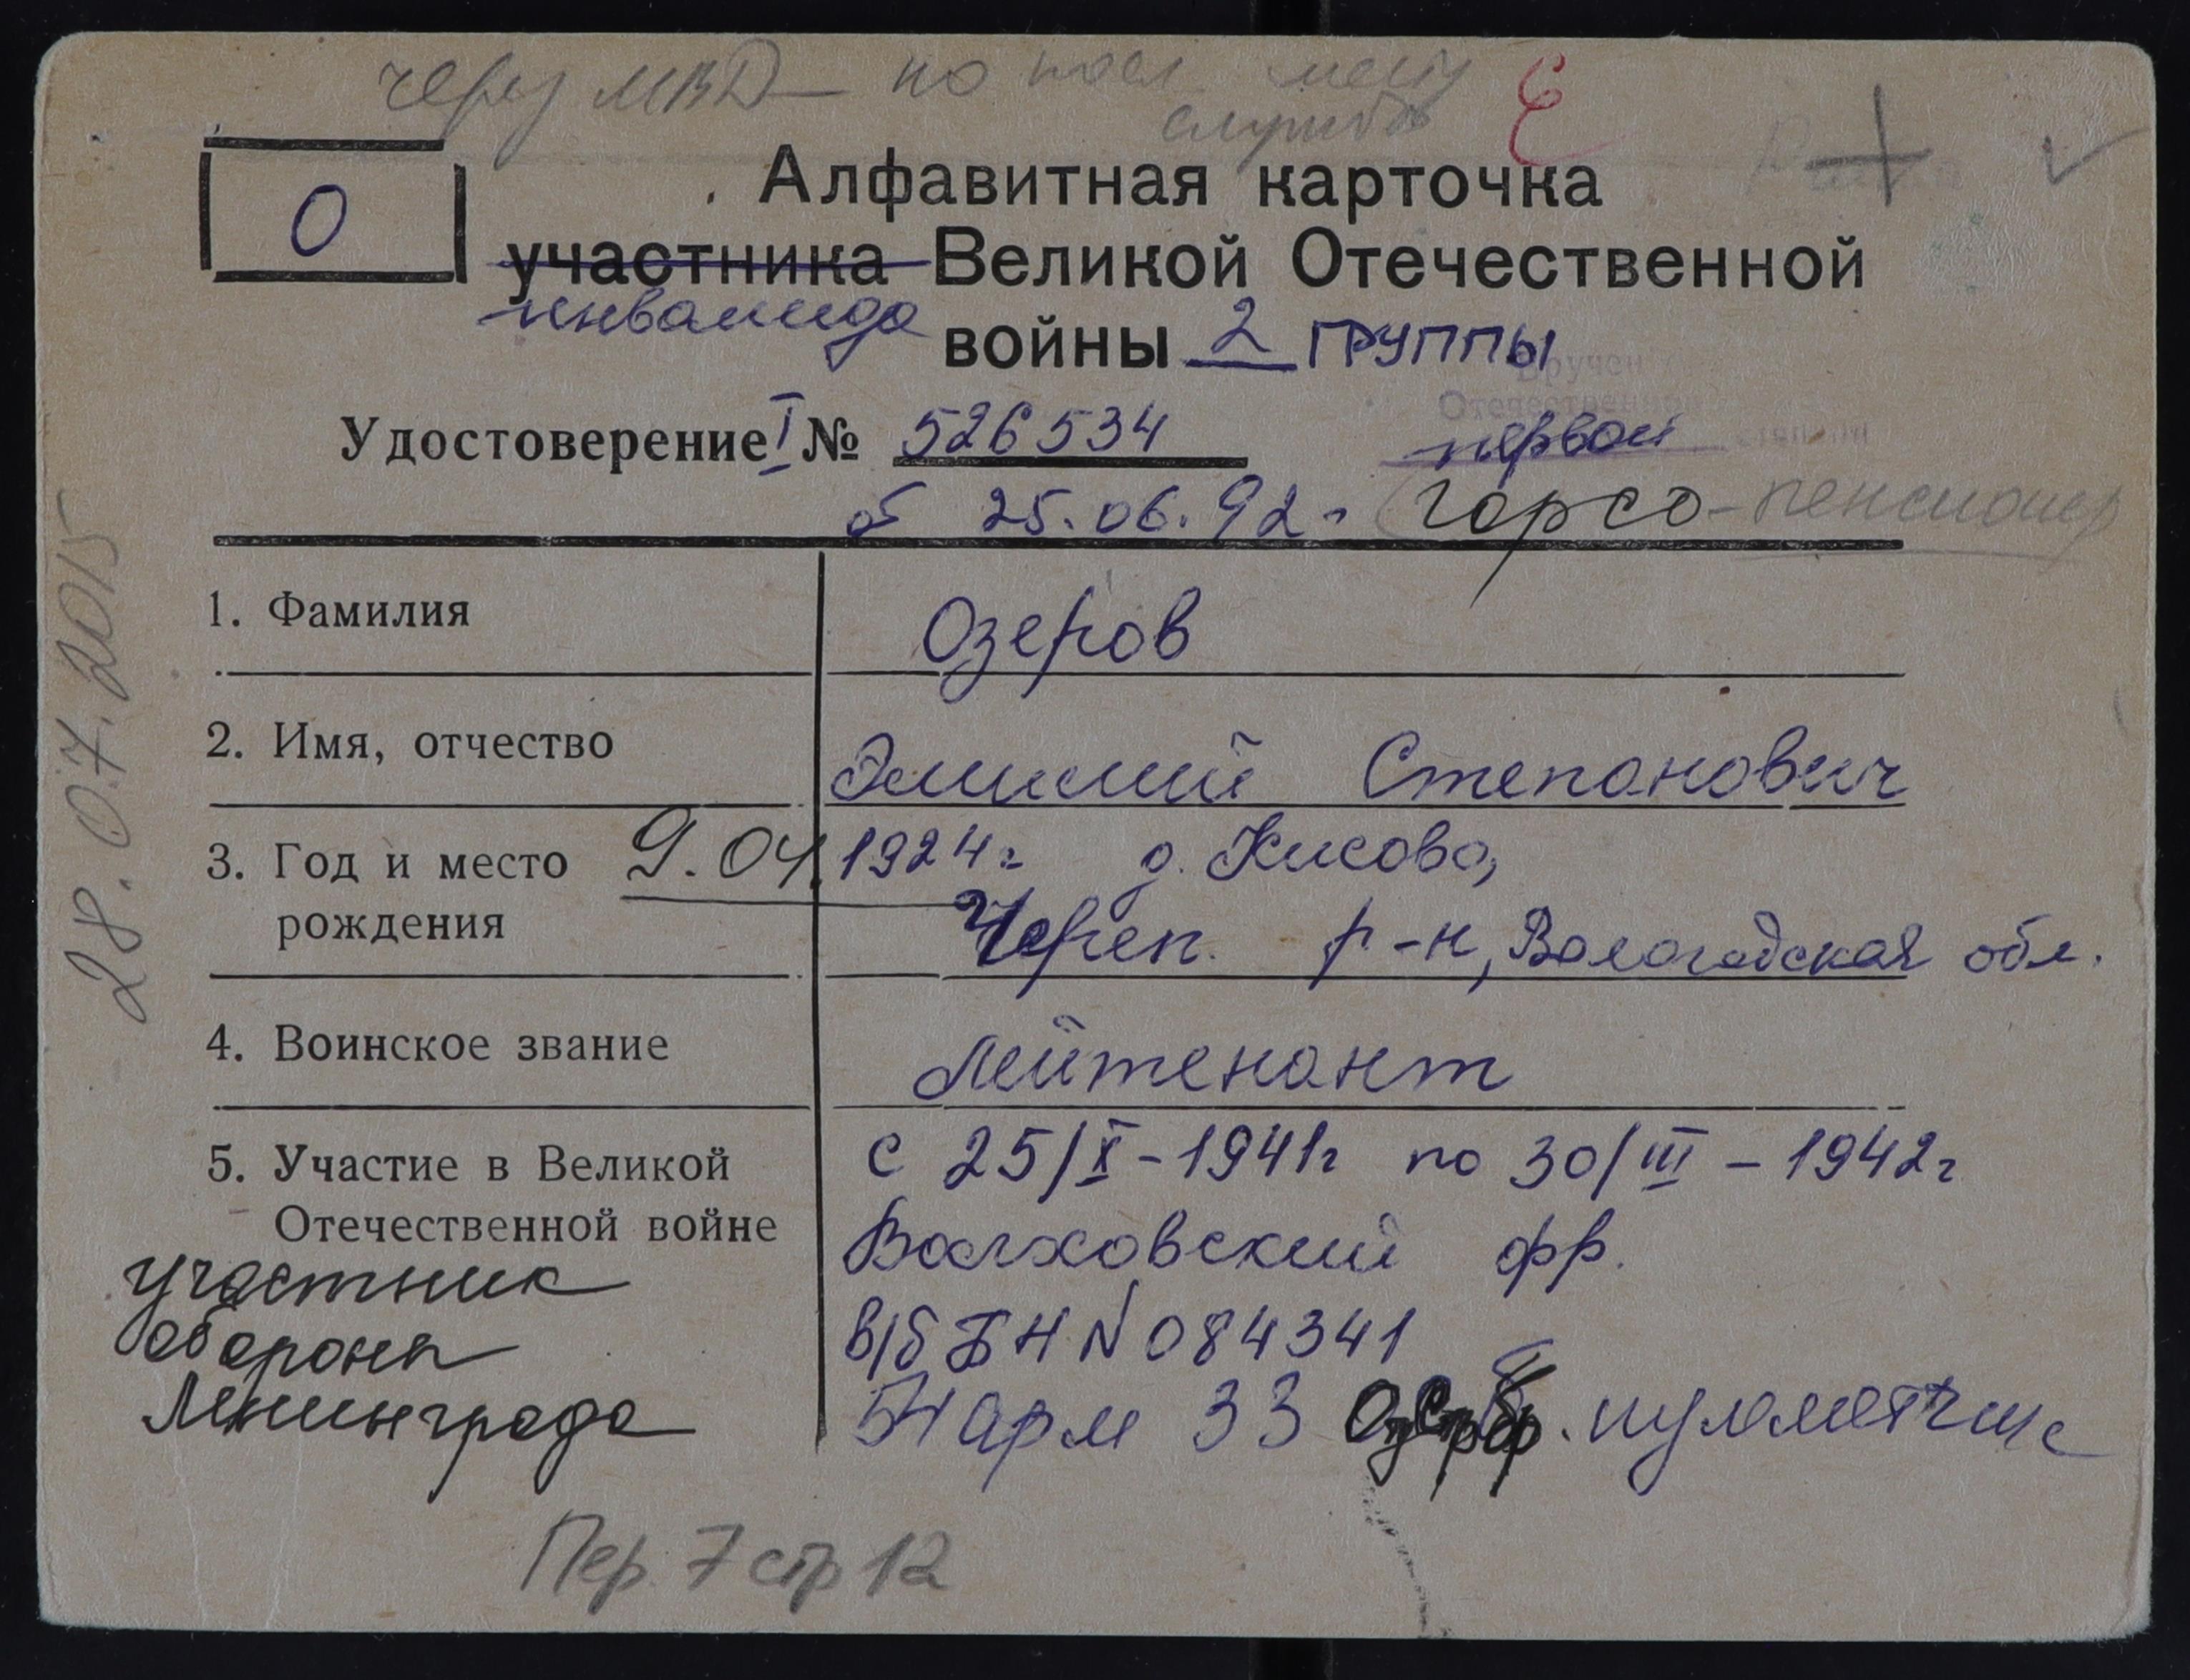 через МВД – по посл месту
службы
Е
О
Алфавитная карточка
участника Великой Отечественной
инвалида
войны 2 группы
Вручен
Отечественной
Удостоверение I № 526534
первой степени
от 25.06.92г горсо-пенсионер
1. Фамилия
Озеров
2. Имя, отчество
Степанович
3. Год и место рождения
9.04. 1924г д. Кисово,
Череп. р-н, Вологодская обл.
4. Воинское звание
Лейтенант
5. Участие в Великой
Отечественной войне
с 25/X-1941г по 30/III-1942г
Волховский фр.
в/б БН N 084341
54 арм 33 пулеметчик
участник
обороны
Ленинграда
28.07.2015
Пер. 7 стр 12